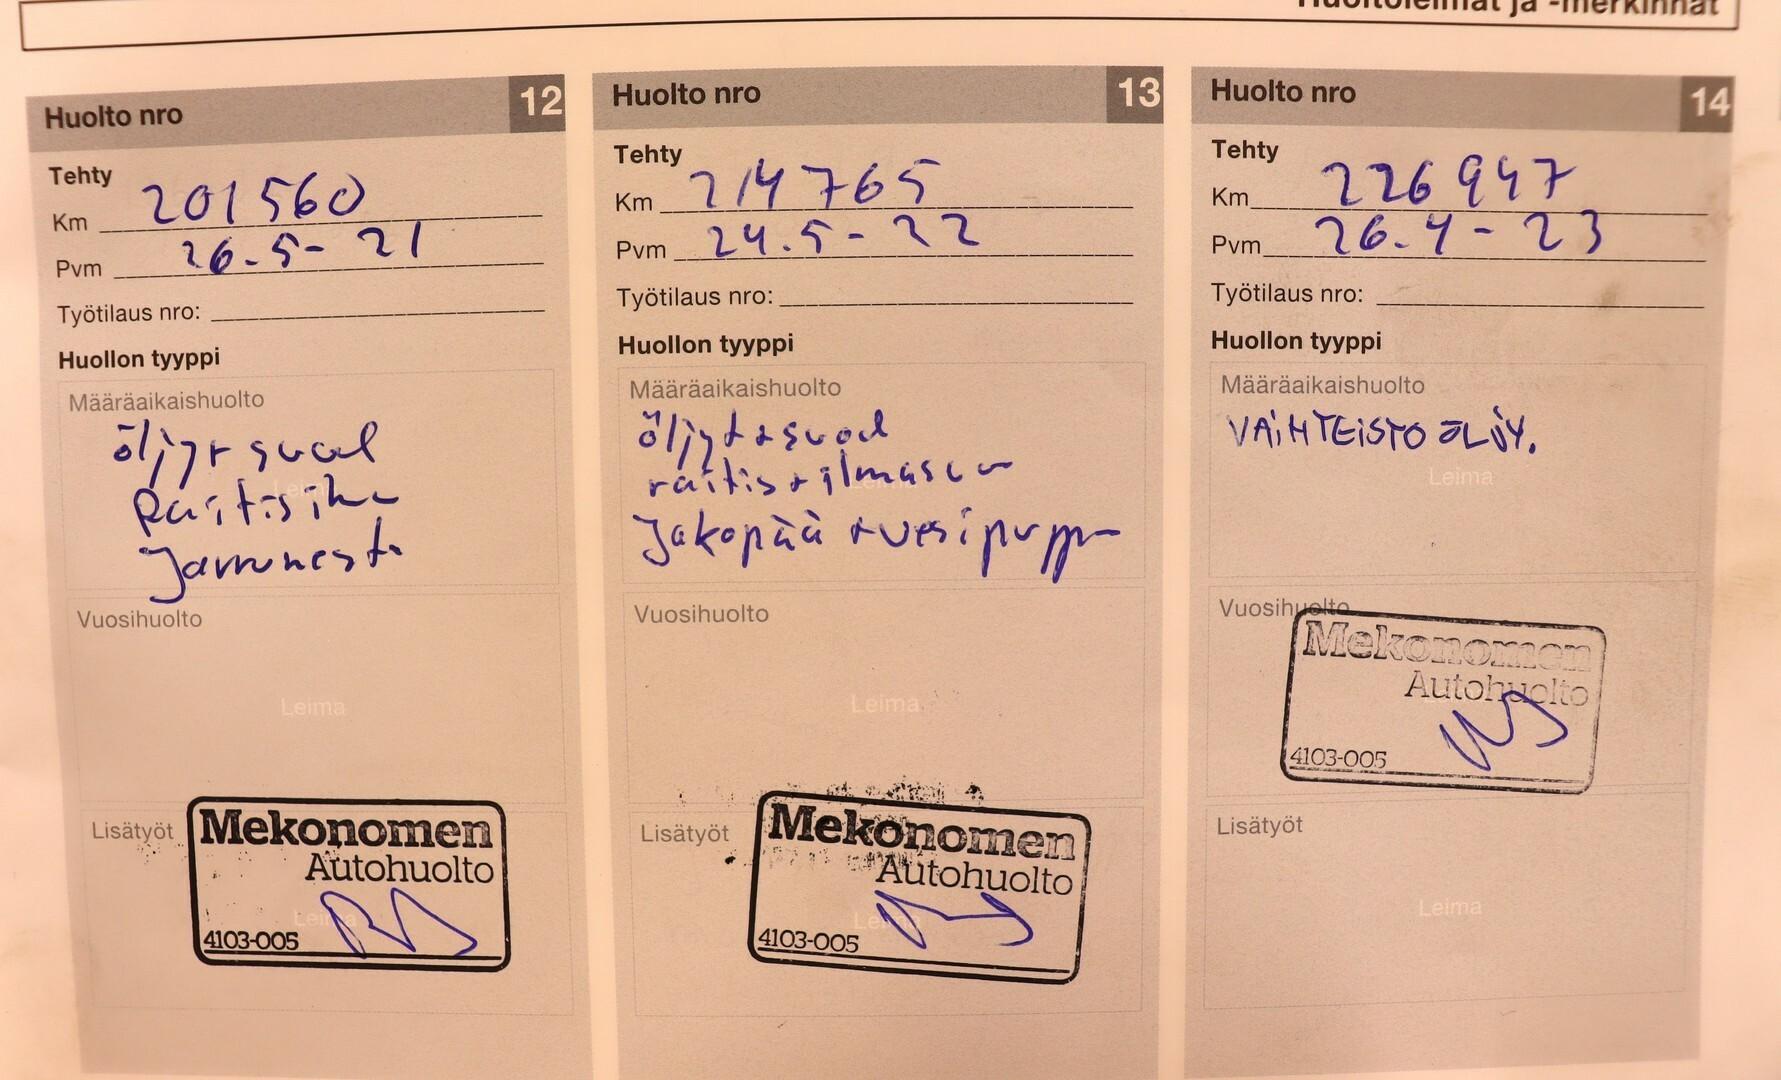 Huoltoleimat ja -merkinnät
Huolto nro 12
Tehty
Km 201560
Pvm 26.5-21
Työtilaus nro:
Huollon tyyppi
Määräaikaishuolto
öljy+suod
Raitisilm
Jarrunest
Leima
Vuosihuolto
Leima
Lisätyöt
Mekonomen
Autohuolto
Leima
4103-005
Huolto nro 13
Tehty
Km 214765
Pvm 24.5-22
Työtilaus nro:
Huollon tyyppi
Määräaikaishuolto
öljyt+suod
raitis+ilmasuo
Jakopää+vesipupp
Vuosihuolto
Leima
Lisätyöt
Mekonomen
Autohuolto
Leima
4103-005
Huolto nro 14
Tehty
Km 226947
Pvm 26.4-23
Työtilaus nro:
Huollon tyyppi
Määräaikaishuolto
VAIHTEISTO ÖLJY.
Leima
Vuosihuolto
Mekonomen
Autohuolto
4103-005
Lisätyöt
Leima